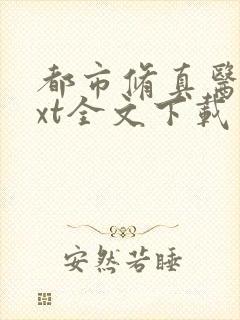 都市脩真醫
xt全文下載
安然若睡